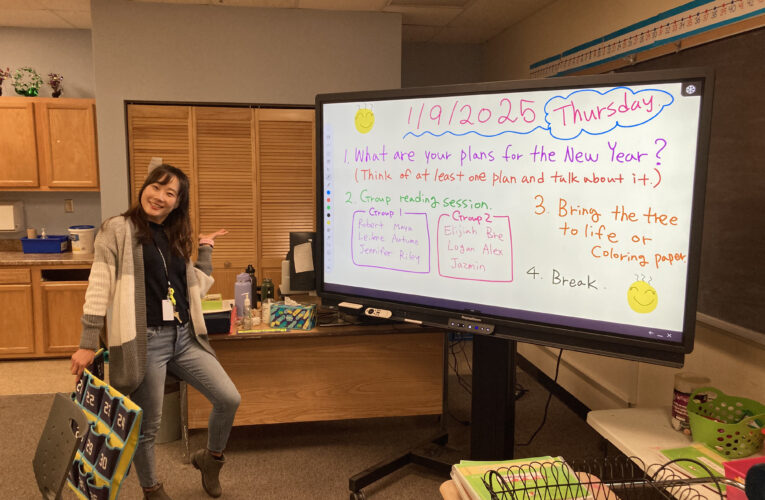 1/9/2025 Thursday.
1. What are your plans for the New Year?
(Think of at least one plan and talk about it.)
2. Group reading session.
Group 1
Robert Maya
Leilani Autumn
Jennifer Riley
Group 2
Elijah Bre
Logan Alex
Jazmin
3. Bring the tree
to life or
Coloring paper
4. Break.